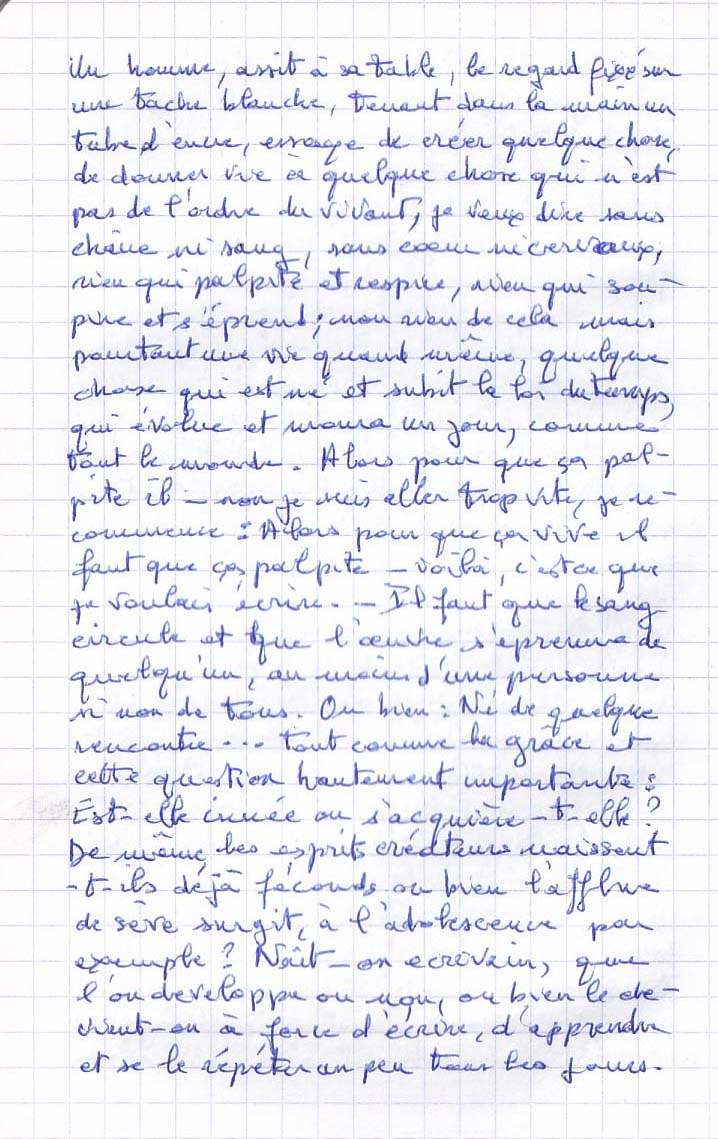 Un homme, assit à sa table, le regard fixé sur
une tache blanche, tenant dans la main un
tube d'encre, essaye de créer quelque chose,
de donner vie à quelque chose qui n'est
pas de l'ordre du vivant, je veux dire sans
chaire ni sang, sans coeur ni cerveaux,
rien qui palpite et respire, rien qui sou-
pire et s'éprend; non rien de cela mais
pourtant une vie quand même, quelque
chose qui est né et subit la loi du temps,
qui évolue et moura un jour, comme
tout le monde. Alors pour que ça pal-
pite il - non je suis aller trop vite, je re-
commence : Alors pour que ça vive il
faut que ça palpite - voilà, c'est ce que
je voulais écrire. - Il faut que le sang
circule et que l'œuvre s'éprenne de
quelqu'un, au moins d'une personne
si non de tous. Ou bien : Né de quelque
rencontre... tout comme la grâce et
cette question hautement importante :
Est-elle innée ou s'acquière-t-elle ?
De même, les esprits créateurs naissent
-t-ils déjà féconds ou bien l'afflue
de sève surgit, à l'adolescence par
exemple ? Naît-on ecrivain, que
l'on developpe ou non, ou bien le de-
vient-on à force d'écrire, d'apprendre
et se le répéter un peu tous les jours.